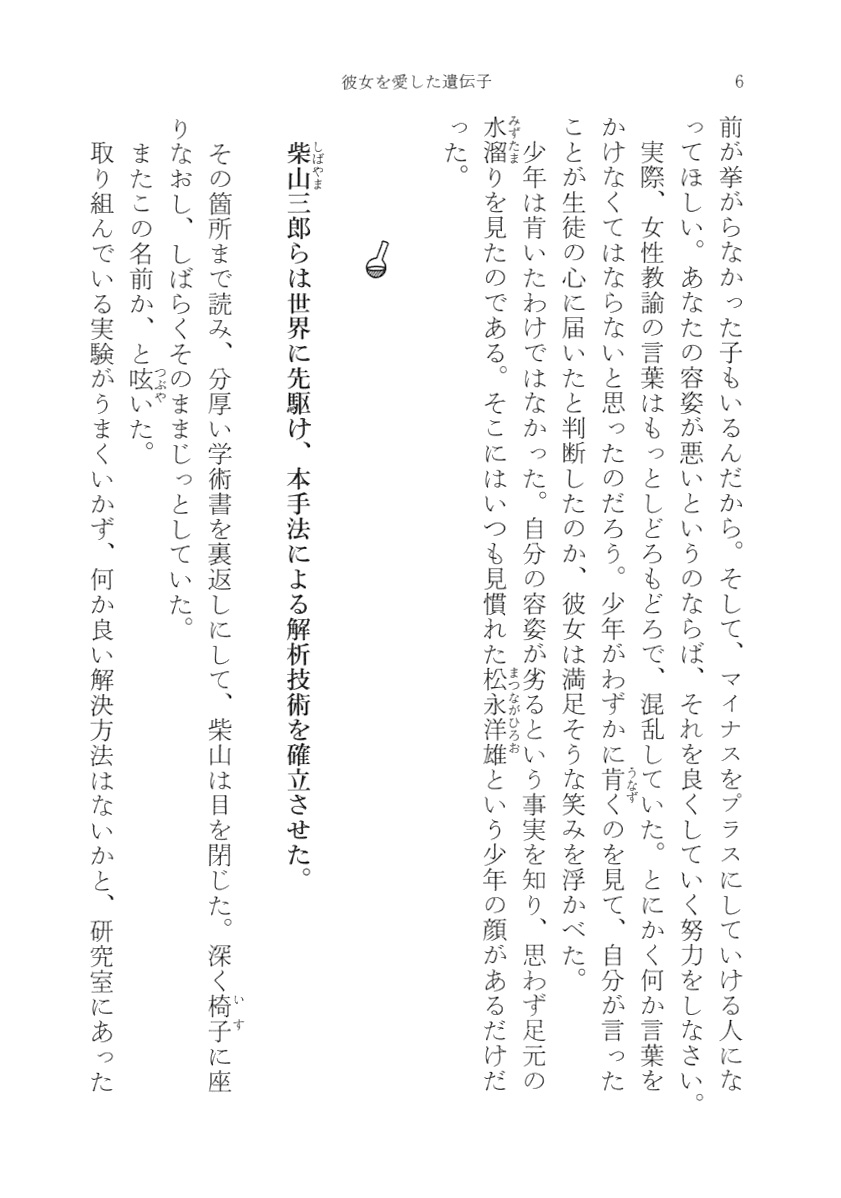 彼女を愛した遺伝子
6
前が挙がらなかった子もいるんだから。そして、マイナスをプラスにしていける人にな
ってほしい。あなたの容姿が悪いというのならば、それを良くしていく努力をしなさい。
実際、女性教諭の言葉はもっとしどろもどろで、混乱していた。とにかく何か言葉を
かけなくてはならないと思ったのだろう。少年がわずかに肯くのを見て、自分が言った
うなず
ことが生徒の心に届いたと判断したのか、彼女は満足そうな笑みを浮かべた。
少年は肯いたわけではなかった。自分の容姿が劣るという事実を知り、思わず足元の
水溜りを見たのである。そこにはいつも見慣れた松永洋雄という少年の顔があるだけだ
みずたま
まつながひろお
った。
柴山三郎らは世界に先駆け、本手法による解析技術を確立させた。
しばやま
その箇所まで読み、分厚い学術書を裏返しにして、柴山は目を閉じた。深く椅子に座
いす
りなおし、しばらくそのままじっとしていた。
またこの名前か、と呟いた。
つぶや
取り組んでいる実験がうまくいかず、何か良い解決方法はないかと、研究室にあった